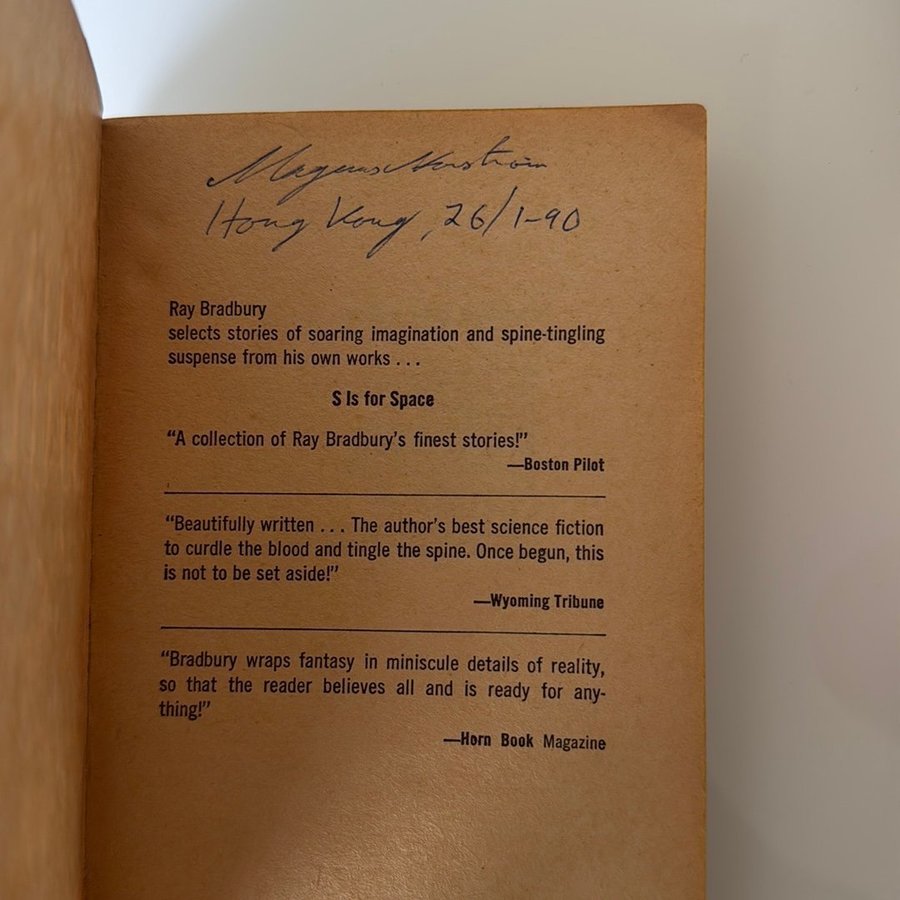 Magnus
Hong Kong, 26/1-90
Ray Bradbury
selects stories of soaring imagination and spine-tingling
suspense from his own works . . .
S Is for Space
“A collection of Ray Bradbury’s finest stories!”
—Boston Pilot
“Beautifully written . . . The author’s best science fiction
to curdle the blood and tingle the spine. Once begun, this
is not to be set aside!”
—Wyoming Tribune
“Bradbury wraps fantasy in miniscule details of reality,
so that the reader believes all and is ready for any-
thing!”
—Horn Book Magazine